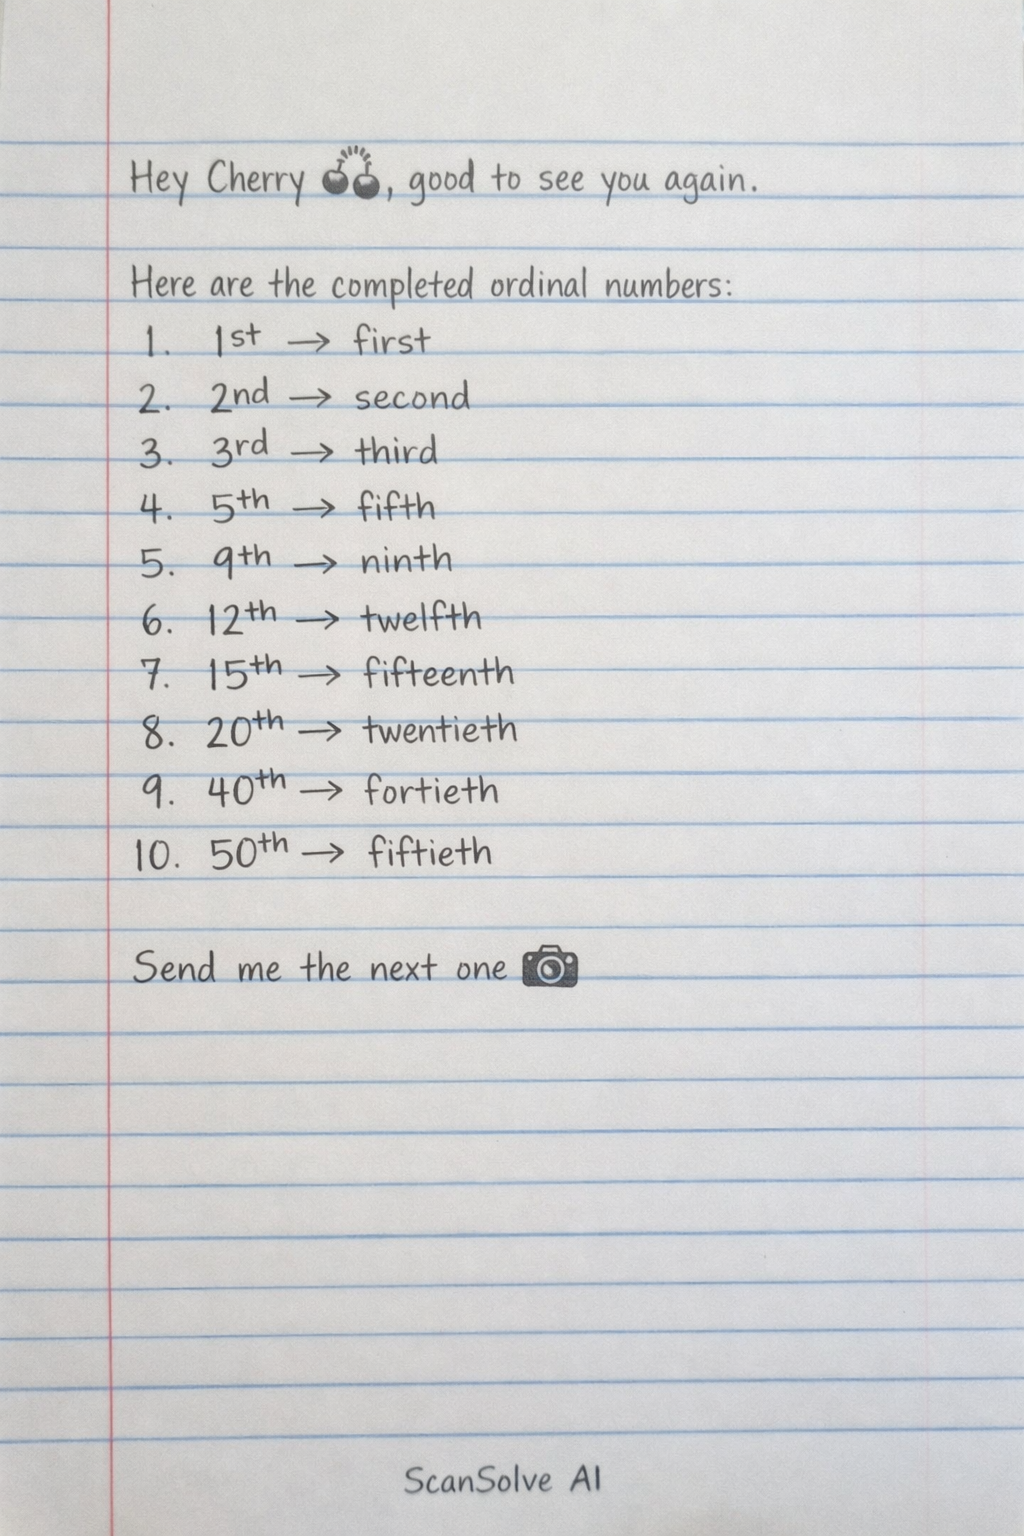 Hey Cherry 🍒, good to see you again.
Here are the completed ordinal numbers:
1. 1st → first
2. 2nd → second
3. 3rd → third
4. 5th → fifth
5. 9th → ninth
6. 12th → twelfth
7. 15th → fifteenth
8. 20th → twentieth
9. 40th → fortieth
10. 50th → fiftieth
Send me the next one 📷
ScanSolve AI